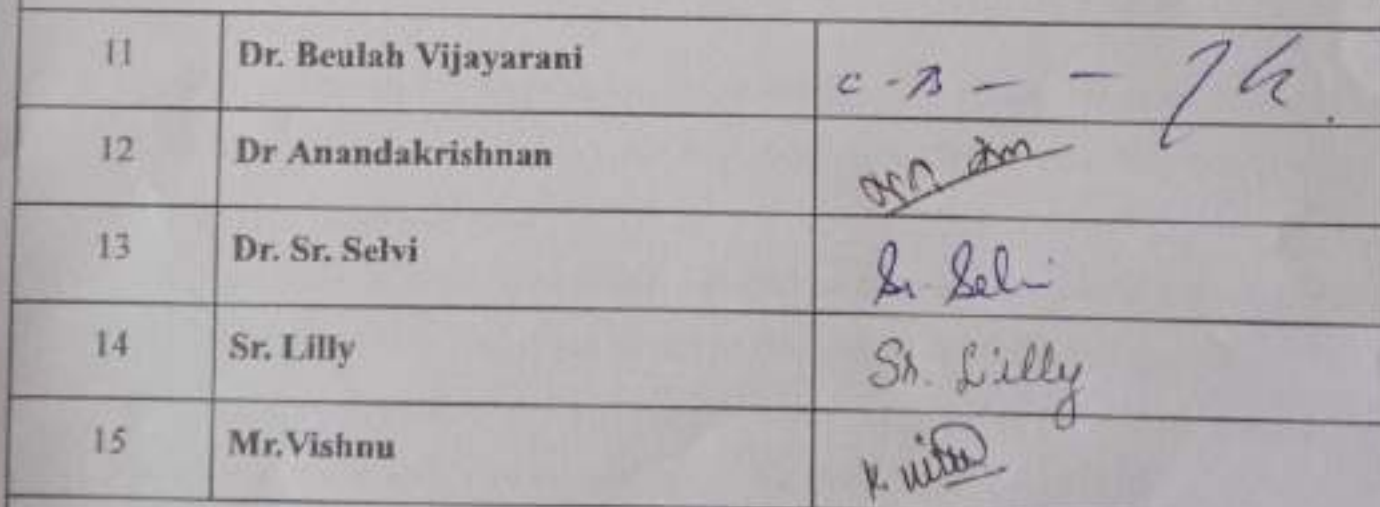 11 Dr. Beulah Vijayarani
12 Dr Anandakrishnan
13 Dr. Sr. Selvi Sr. Selvi
14 Sr. Lilly Sr. Lilly
15 Mr.Vishnu K.